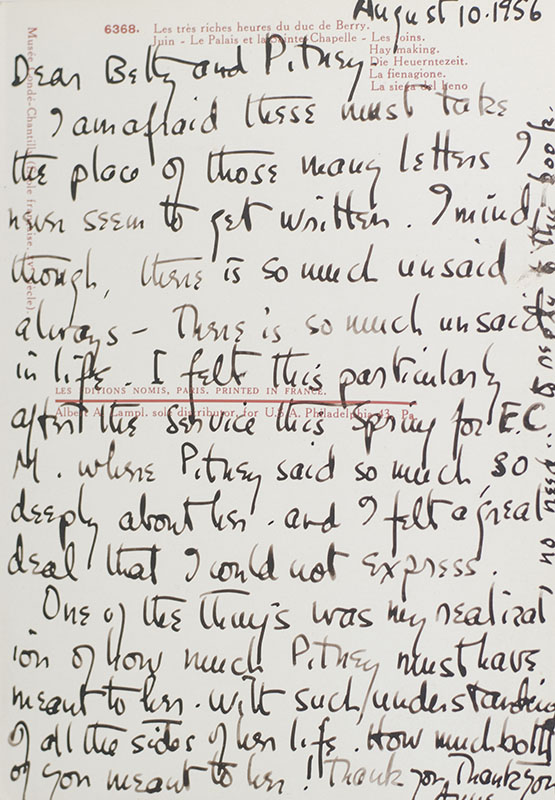 August 10. 1956
6368. Les très riches heures du duc de Berry.
Juin - Le Palais et la Sainte Chapelle - Les foins.
Hay making.
Die Heuerntezeit.
La fienagione.
La siega del heno
Dear Betty and Pitney -
I am afraid these must take
the place of those many letters I
never seem to get written. I mind,
though, there is so much unsaid
always - There is so much unsaid
in life. I felt this particularly
LES EDITIONS NOMIS, PARIS. PRINTED IN FRANCE.
Albert A. Lampl. sole distributor, for U.S.A. Philadelphia 43, Pa.
after the service this Spring for E.C.
M. where Pitney said so much, so
deeply about her. and I felt a great
deal that I could not express.
One of the things was my realizat
ion of how much Pitney must have
meant to her. with such understanding
of all the sides of her life. How much both
of you meant to her! Thank you, Thank you
Anne
Musée Condé-Chantilly
no need
this book